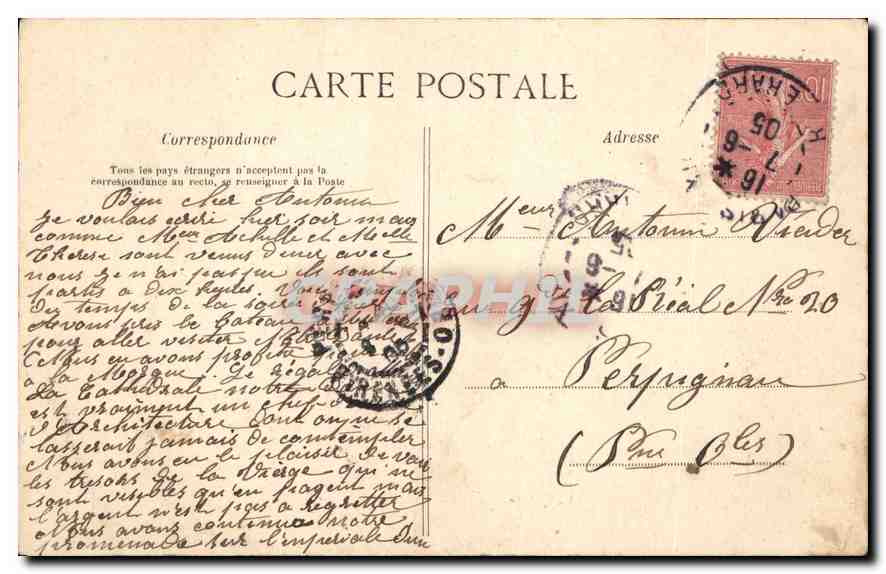 CARTE POSTALE
Correspondance
Tous les pays étrangers n'acceptent pas la
correspondance au recto, se renseigner à la Poste
Bien cher Antonin
Je voulais écrire hier soir mais
comme Mr Achille et Melle
Thérèse sont venus diner avec
nous je n'ai pas pu ils sont
partis a dix heures.
du temps de la
avons pris le bateau
pour aller visiter Notre Dame
Nous en avons profité
a la Morgue. Je
La Cathédrale notre
est vraiment un chef d
d'Architecture dont on ne se
lasserait jamais de contempler
Nous avons eu le plaisir de voir
les trésors de la Vierge qui ne
sont visibles qu'en payent mais
l'argent n'est pas a regretter
Nous avons continué notre
promenade sur l'impériale d'un
Adresse
Mr Antonin
La Réal No 20
a Perpignan
(Pnées Oles)
16 *
7 - 6
05
PYRENEES-OR